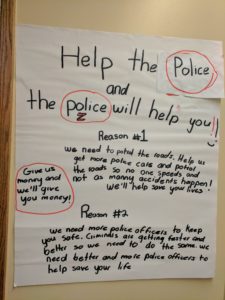 Help the Police
and
the police will help you!!
Reason #1
we need to patrol the roads. Help us
get more police cars and patrol
the roads so no one speeds and
not as manny accidents happen!
We'll help save your lives!
Give us
money and
we'll give
you money!
Reason #2
we need more police officers to keep
you safe. Criminals are getting faster and
better so we need to do the same we
need better and more police officers to
help save your life